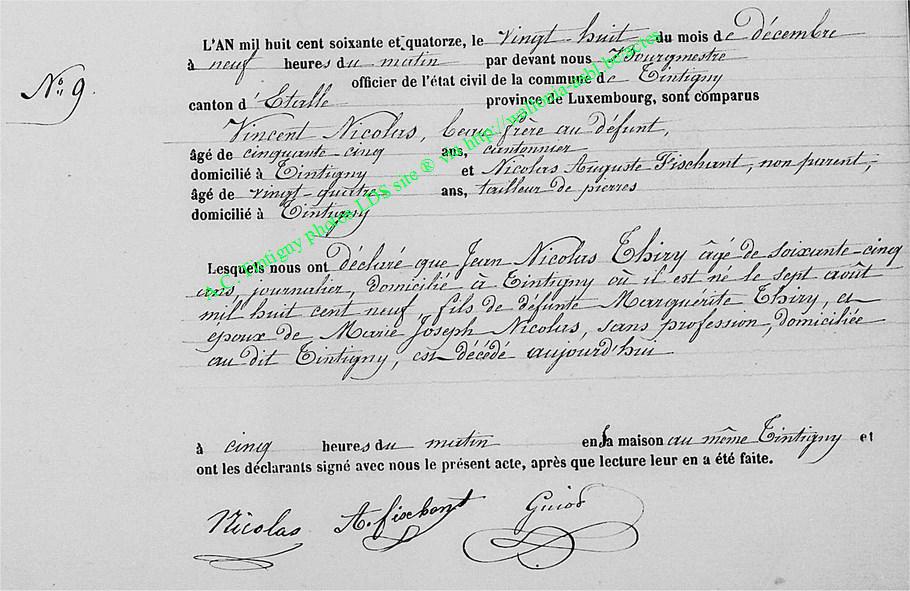 L'AN mil huit cent soixante et quatorze, le vingt huit du mois de décembre
à neuf heures du matin par devant nous Bourgmestre
officier de l'état civil de la commune de Tintigny
N° 9.
canton d'Etalle province de Luxembourg, sont comparus
Vincent Nicolas, beau frère au défunt,
âgé de cinquante-cinq ans, cantonnier
domicilié à Tintigny et Nicolas Auguste Fischant, non parent,
âgé de vingt-quatre ans, tailleur de pierres
domicilié à Tintigny
A.C. Tintigny photos LDS site ® via http://wallonia-asbl.be/actes
Lesquels nous ont déclaré que Jean Nicolas Thiry âgé de soixante-cinq
ans, journalier, domicilié à Tintigny où il est né le sept août
mil huit cent neuf, fils de défunte Marguérite Thiry, et
époux de Marie Joseph Nicolas, sans profession, domiciliée
au dit Tintigny, est décédé aujourd'hui
à cinq heures du matin en sa maison au même Tintigny et
ont les déclarants signé avec nous le présent acte, après que lecture leur en a été faite.
Nicolas A. fischant Guiod